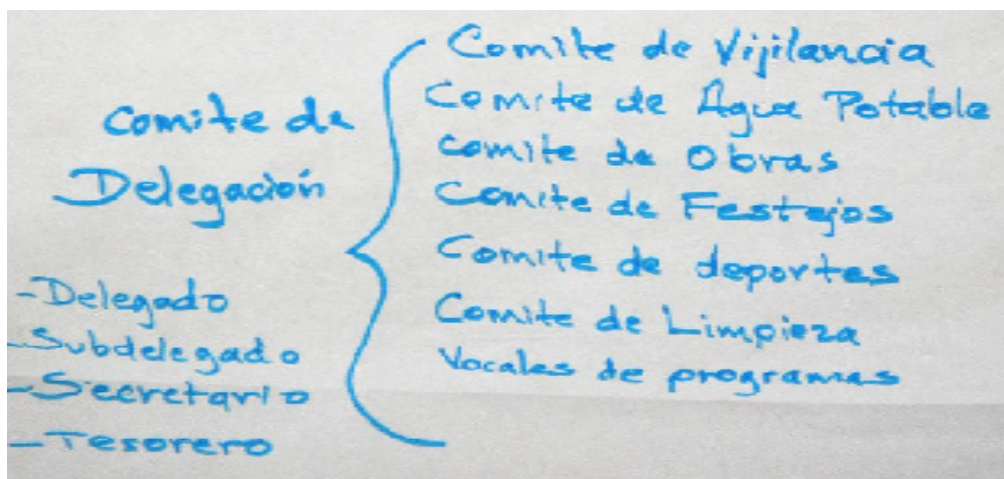 Comite de
Delegación
-Delegado
-Subdelegado
-Secretario
-Tesorero
Comite de Vijilancia
Comite de Agua Potable
comite de Obras
Comite de Festejos
Comite de deportes
Comite de Limpieza
Vocales de programas